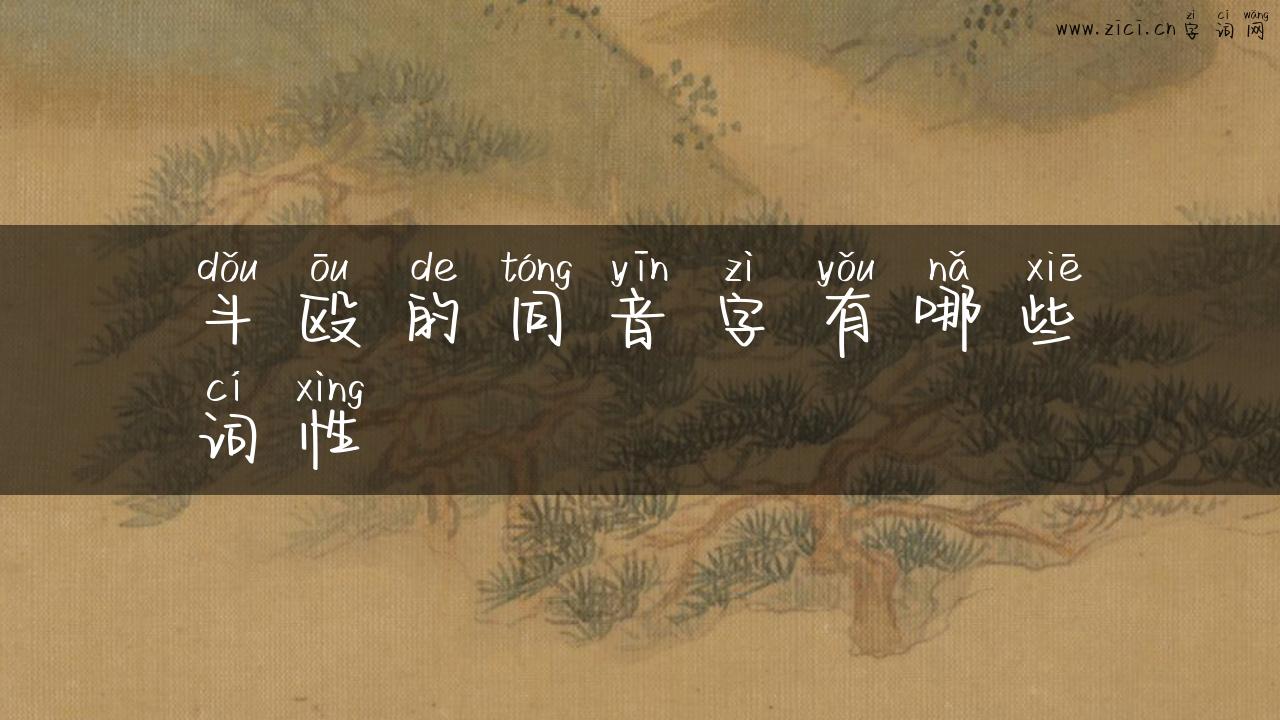 zì cí wǎng
www.zici.cn 字词网
dǒu ōu de tóng yīn zì yǒu nǎ xiē
斗殴的同音字有哪些
cí xìng
词性